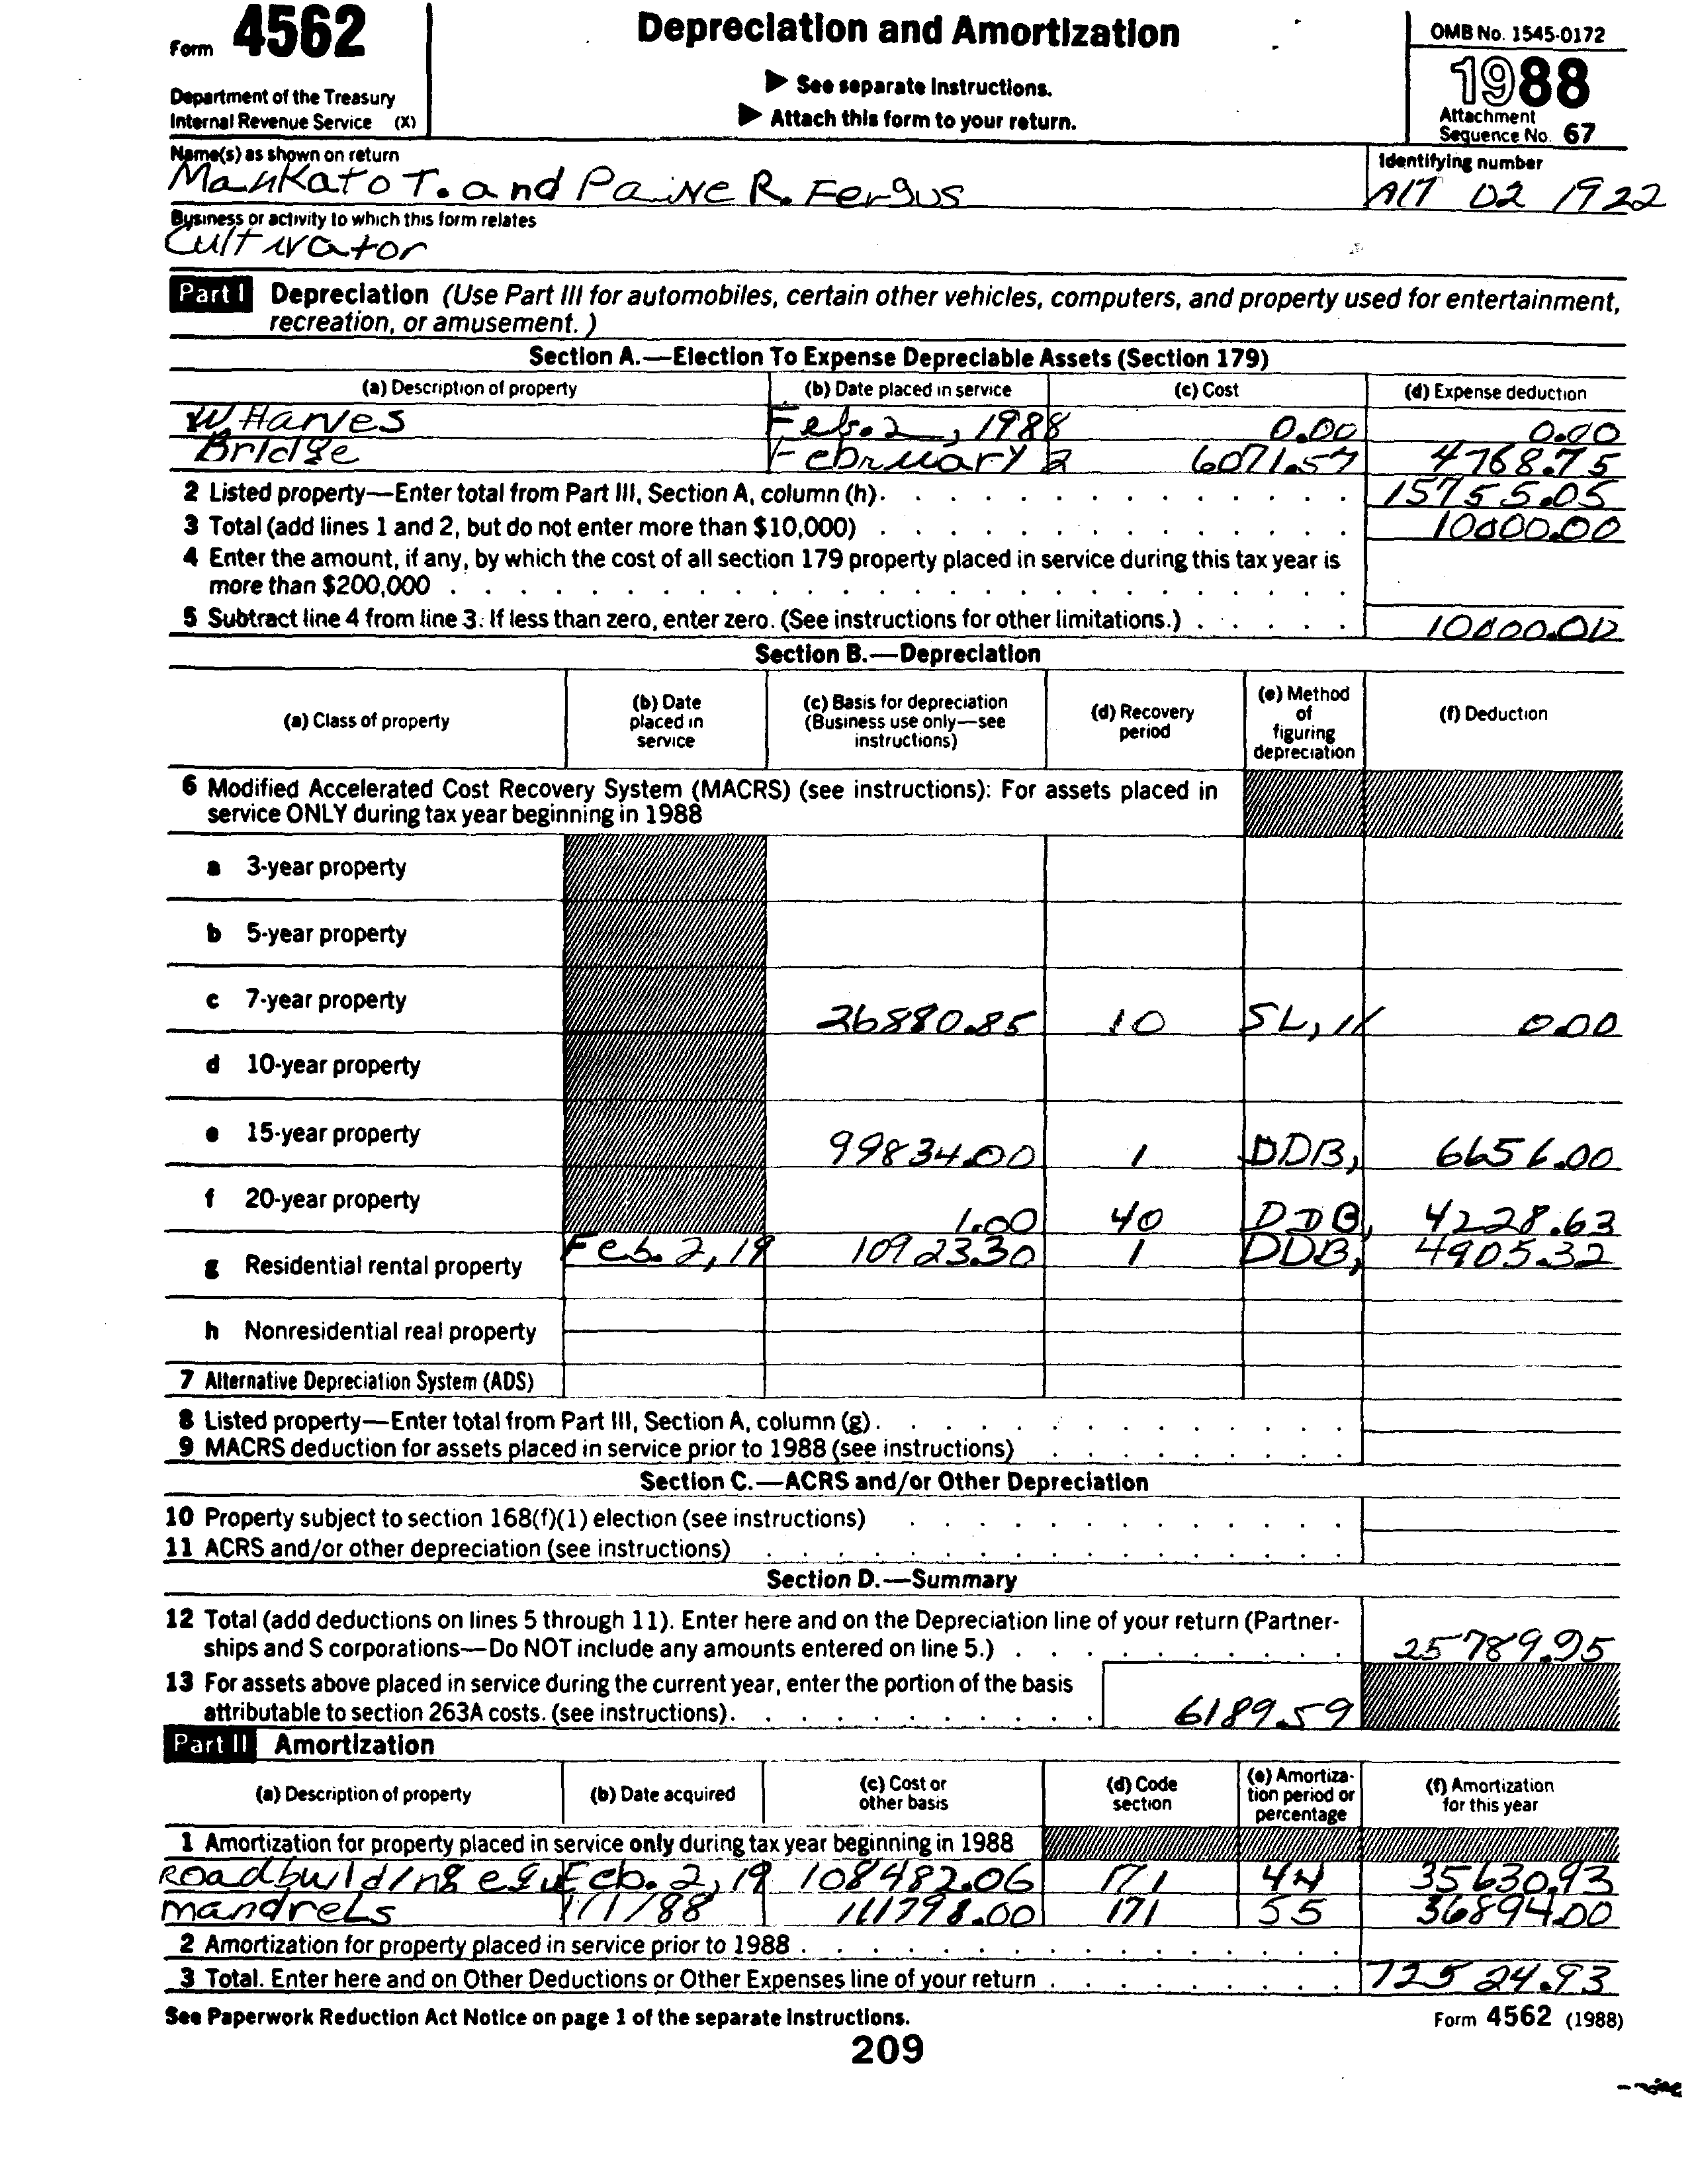 Form 4562
Department of the Treasury
Internal Revenue Service (X)
Depreciation and Amortization
▶ See separate Instructions.
▶ Attach this form to your return.
OMB No. 1545-0172
1988
Attachment
Sequence No. 67
Name(s) as shown on return
Mankato T. and Paine R. Fergus
Identifying number
A17 02 1922
Business or activity to which this form relates
Cultivator
Part I Depreciation (Use Part III for automobiles, certain other vehicles, computers, and property used for entertainment,
recreation, or amusement.)
Section A.—Election To Expense Depreciable Assets (Section 179)
(a) Description of property (b) Date placed in service (c) Cost (d) Expense deduction
WHarves Feb. 2, 1988 0.00 0.00
Bridge February 2 6071.57 4768.75
2 Listed property—Enter total from Part III, Section A, column (h). 15755.05
3 Total (add lines 1 and 2, but do not enter more than $10,000) 10000.00
4 Enter the amount, if any, by which the cost of all section 179 property placed in service during this tax year is
more than $200,000
5 Subtract line 4 from line 3. If less than zero, enter zero. (See instructions for other limitations.) 10000.00
Section B.—Depreciation
(a) Class of property
(b) Date
placed in
service
(c) Basis for depreciation
(Business use only—see
instructions)
(d) Recovery
period
(e) Method
of
figuring
depreciation
(f) Deduction
6 Modified Accelerated Cost Recovery System (MACRS) (see instructions): For assets placed in
service ONLY during tax year beginning in 1988
a 3-year property
b 5-year property
c 7-year property 26880.85 10 SL, 0.00
d 10-year property
e 15-year property 99834.00 1 DDB, 6656.00
f 20-year property 1.00 40 DDB, 4228.63
g Residential rental property Feb. 2, 19 10923.30 1 DDB, 4905.32
h Nonresidential real property
7 Alternative Depreciation System (ADS)
8 Listed property—Enter total from Part III, Section A, column (g).
9 MACRS deduction for assets placed in service prior to 1988 (see instructions)
Section C.—ACRS and/or Other Depreciation
10 Property subject to section 168(f)(1) election (see instructions)
11 ACRS and/or other depreciation (see instructions)
Section D.—Summary
12 Total (add deductions on lines 5 through 11). Enter here and on the Depreciation line of your return (Partner-
ships and S corporations—Do NOT include any amounts entered on line 5.) 25789.95
13 For assets above placed in service during the current year, enter the portion of the basis
attributable to section 263A costs. (see instructions). 6189.59
Part II Amortization
(a) Description of property
(b) Date acquired
(c) Cost or
other basis
(d) Code
section
(e) Amortiza-
tion period or
percentage
(f) Amortization
for this year
1 Amortization for property placed in service only during tax year beginning in 1988
Roadbuilding equ Feb. 2, 19 108482.06 171 44 35630.93
mandrels 1/1/88 111798.00 171 55 36894.00
2 Amortization for property placed in service prior to 1988
3 Total. Enter here and on Other Deductions or Other Expenses line of your return 72524.93
See Paperwork Reduction Act Notice on page 1 of the separate Instructions.
Form 4562 (1988)
209